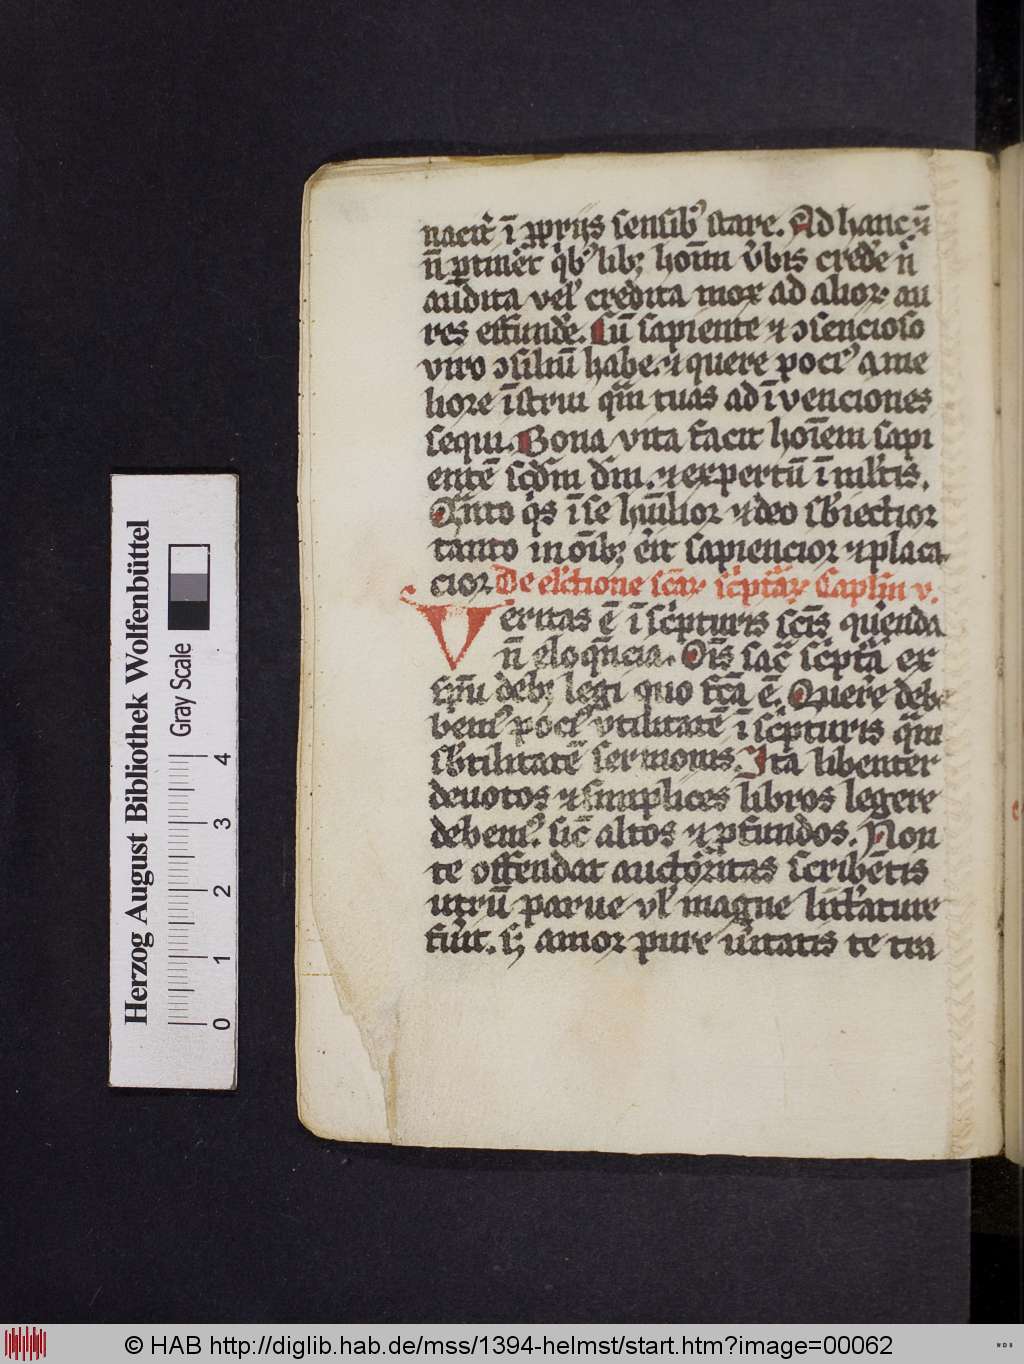 naciť ī ꝓprijs sensibꝰ stare. Ad hanc ⁊
n̄ ꝑtinēt qͥbꝰlibꝫ hoīm v̓bis crede᷑ n̓
audita vel̓ credita mox ad alioꝝ au
res effunde᷑. Cū sapiente ⁊ ꝯsencioso
viro ꝯsiliū habe. ⁊ quere pociꝰ a me
liore īstrui qͣm tuas ad īvenciones
sequi. Bona vita facit hoīem sapi
entē scd̓m dm̄. ⁊ expertū ī ml̓tis.
Qͣnto qͥs ī se hūilior ⁊ deo sb̓iectior
tanto in oībꝫ erit sapiencior ⁊ placa
cior De el̓ctione scāꝝ sc̓ptaꝝ Caplm̄ v.
Veritas ē ī sc̓pturis sc̄is quērenda
n̄ eloqūēcia. Oīs sac̓ sc̓ptā ex
sp̄iu debꝫ legi quo fc̄a ē. Quere᷑ debe
bemꝰ pociꝰ vtilitatē ī sc̓pturis qͣm
sb̓tilitatē sermonis. Ita libenter
deuotos ⁊ simplices libros legere
debemꝰ. sic̄ altos ⁊ ꝓfundos. Non
te offendat auctoritas scribētis
utrū parue vl̓ magne litt̓ature
fūit. sꝫ amor pure v̓itatis te tra
Herzog August Bibliothek Wolfenbüttel
Gray Scale
0 1 2 3 4
© HAB http://diglib.hab.de/mss/1394-helmst/start.htm?image=00062